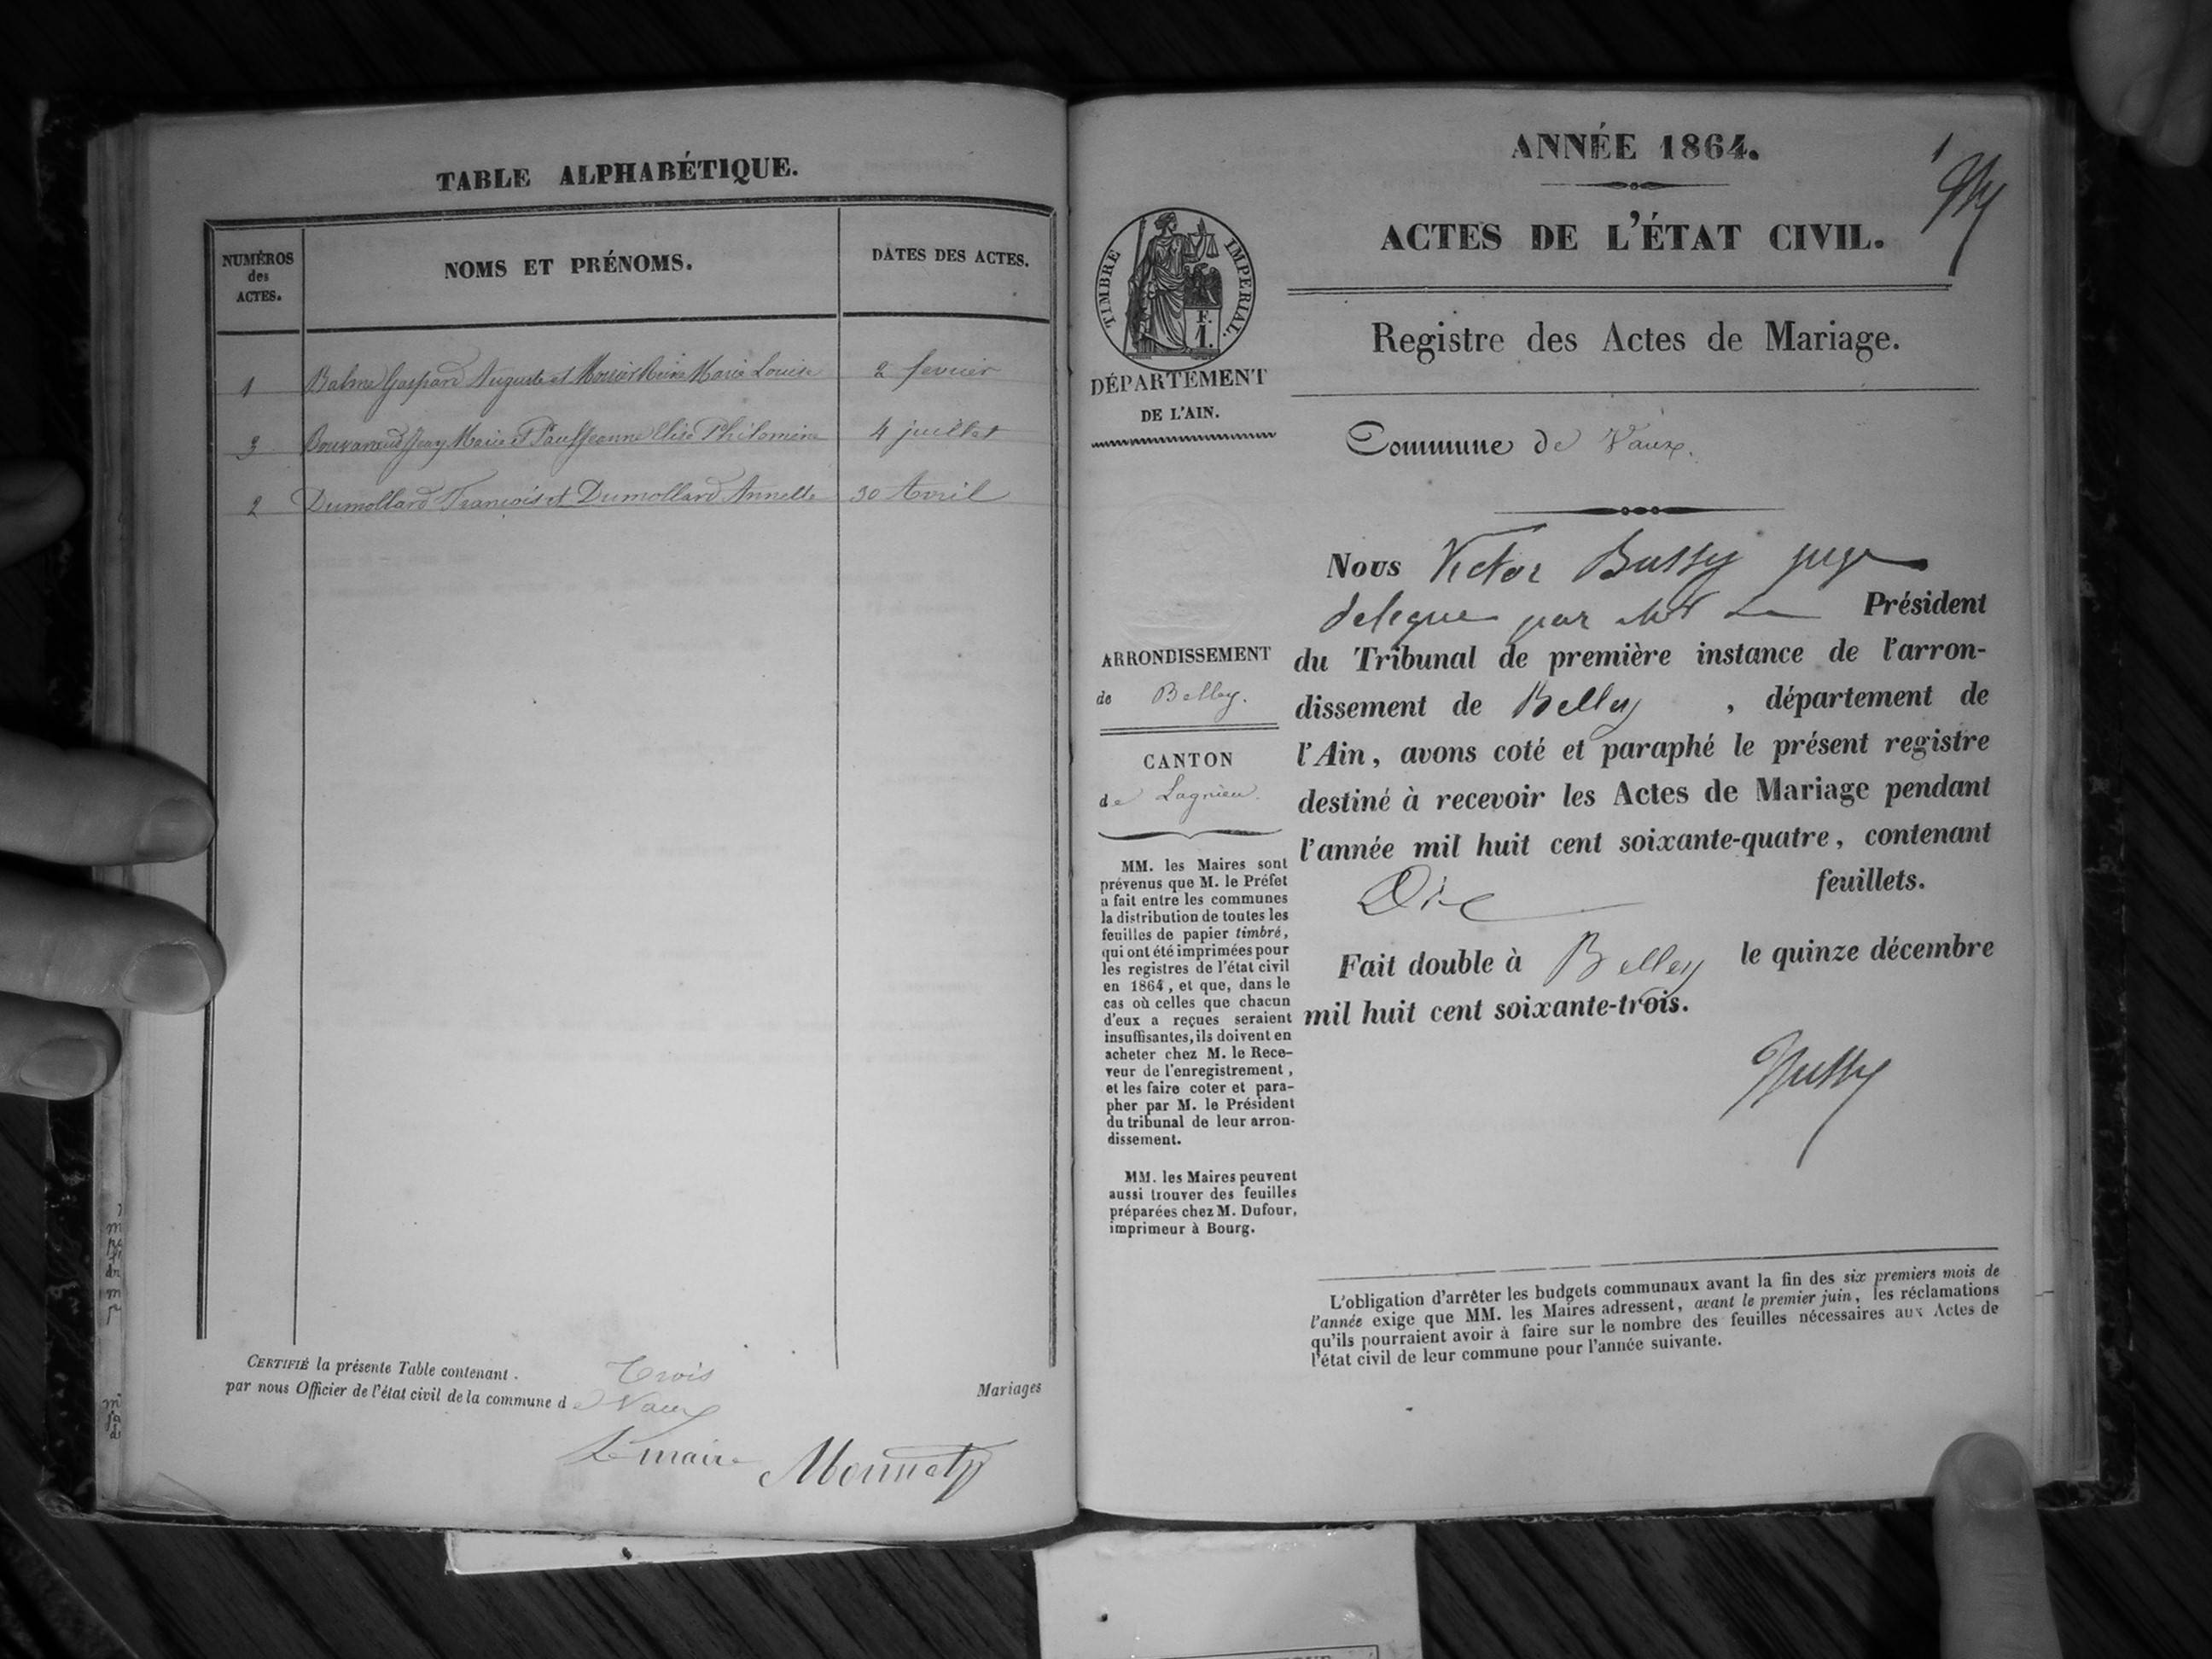 TABLE ALPHABÉTIQUE.
NUMÉROS
des
ACTES.
NOMS ET PRÉNOMS.
DATES DES ACTES.
1 Balme Gaspard Auguste et Marie Louise 2 fevrier
3 Jean Marie et Jeanne Elise Philomène 4 juillet
2 Dumollard François et Dumollard Annette 30 Avril
CERTIFIÉ la présente Table contenant Trois Mariages
par nous Officier de l'état civil de la commune de Vaux
Le maire Monnet
ANNÉE 1864.
1
ACTES DE L'ÉTAT CIVIL.
TIMBRE IMPERIAL.
F.
1.
DÉPARTEMENT
DE L'AIN.
Registre des Actes de Mariage.
Commune de Vaux.
ARRONDISSEMENT
de Belley.
CANTON
de Lagnieu.
MM. les Maires sont
prévenus que M. le Préfet
a fait entre les communes
la distribution de toutes les
feuilles de papier timbré,
qui ont été imprimées pour
les registres de l'état civil
en 1864, et que, dans le
cas où celles que chacun
d'eux a reçues seraient
insuffisantes, ils doivent en
acheter chez M. le Rece-
veur de l'enregistrement,
et les faire coter et para-
pher par M. le Président
du tribunal de leur arron-
dissement.
MM. les Maires peuvent
aussi trouver des feuilles
préparées chez M. Dufour,
imprimeur à Bourg.
Nous Victor Bussy juge
delegue par Mr Le Président
du Tribunal de première instance de l'arron-
dissement de Belley, département de
l'Ain, avons coté et paraphé le présent registre
destiné à recevoir les Actes de Mariage pendant
l'année mil huit cent soixante-quatre, contenant
Dix feuillets.
Fait double à Belley le quinze décembre
mil huit cent soixante-trois.
Bussy
L'obligation d'arrêter les budgets communaux avant la fin des six premiers mois de
l'année exige que MM. les Maires adressent, avant le premier juin, les réclamations
qu'ils pourraient avoir à faire sur le nombre des feuilles nécessaires aux Actes de
l'état civil de leur commune pour l'année suivante.